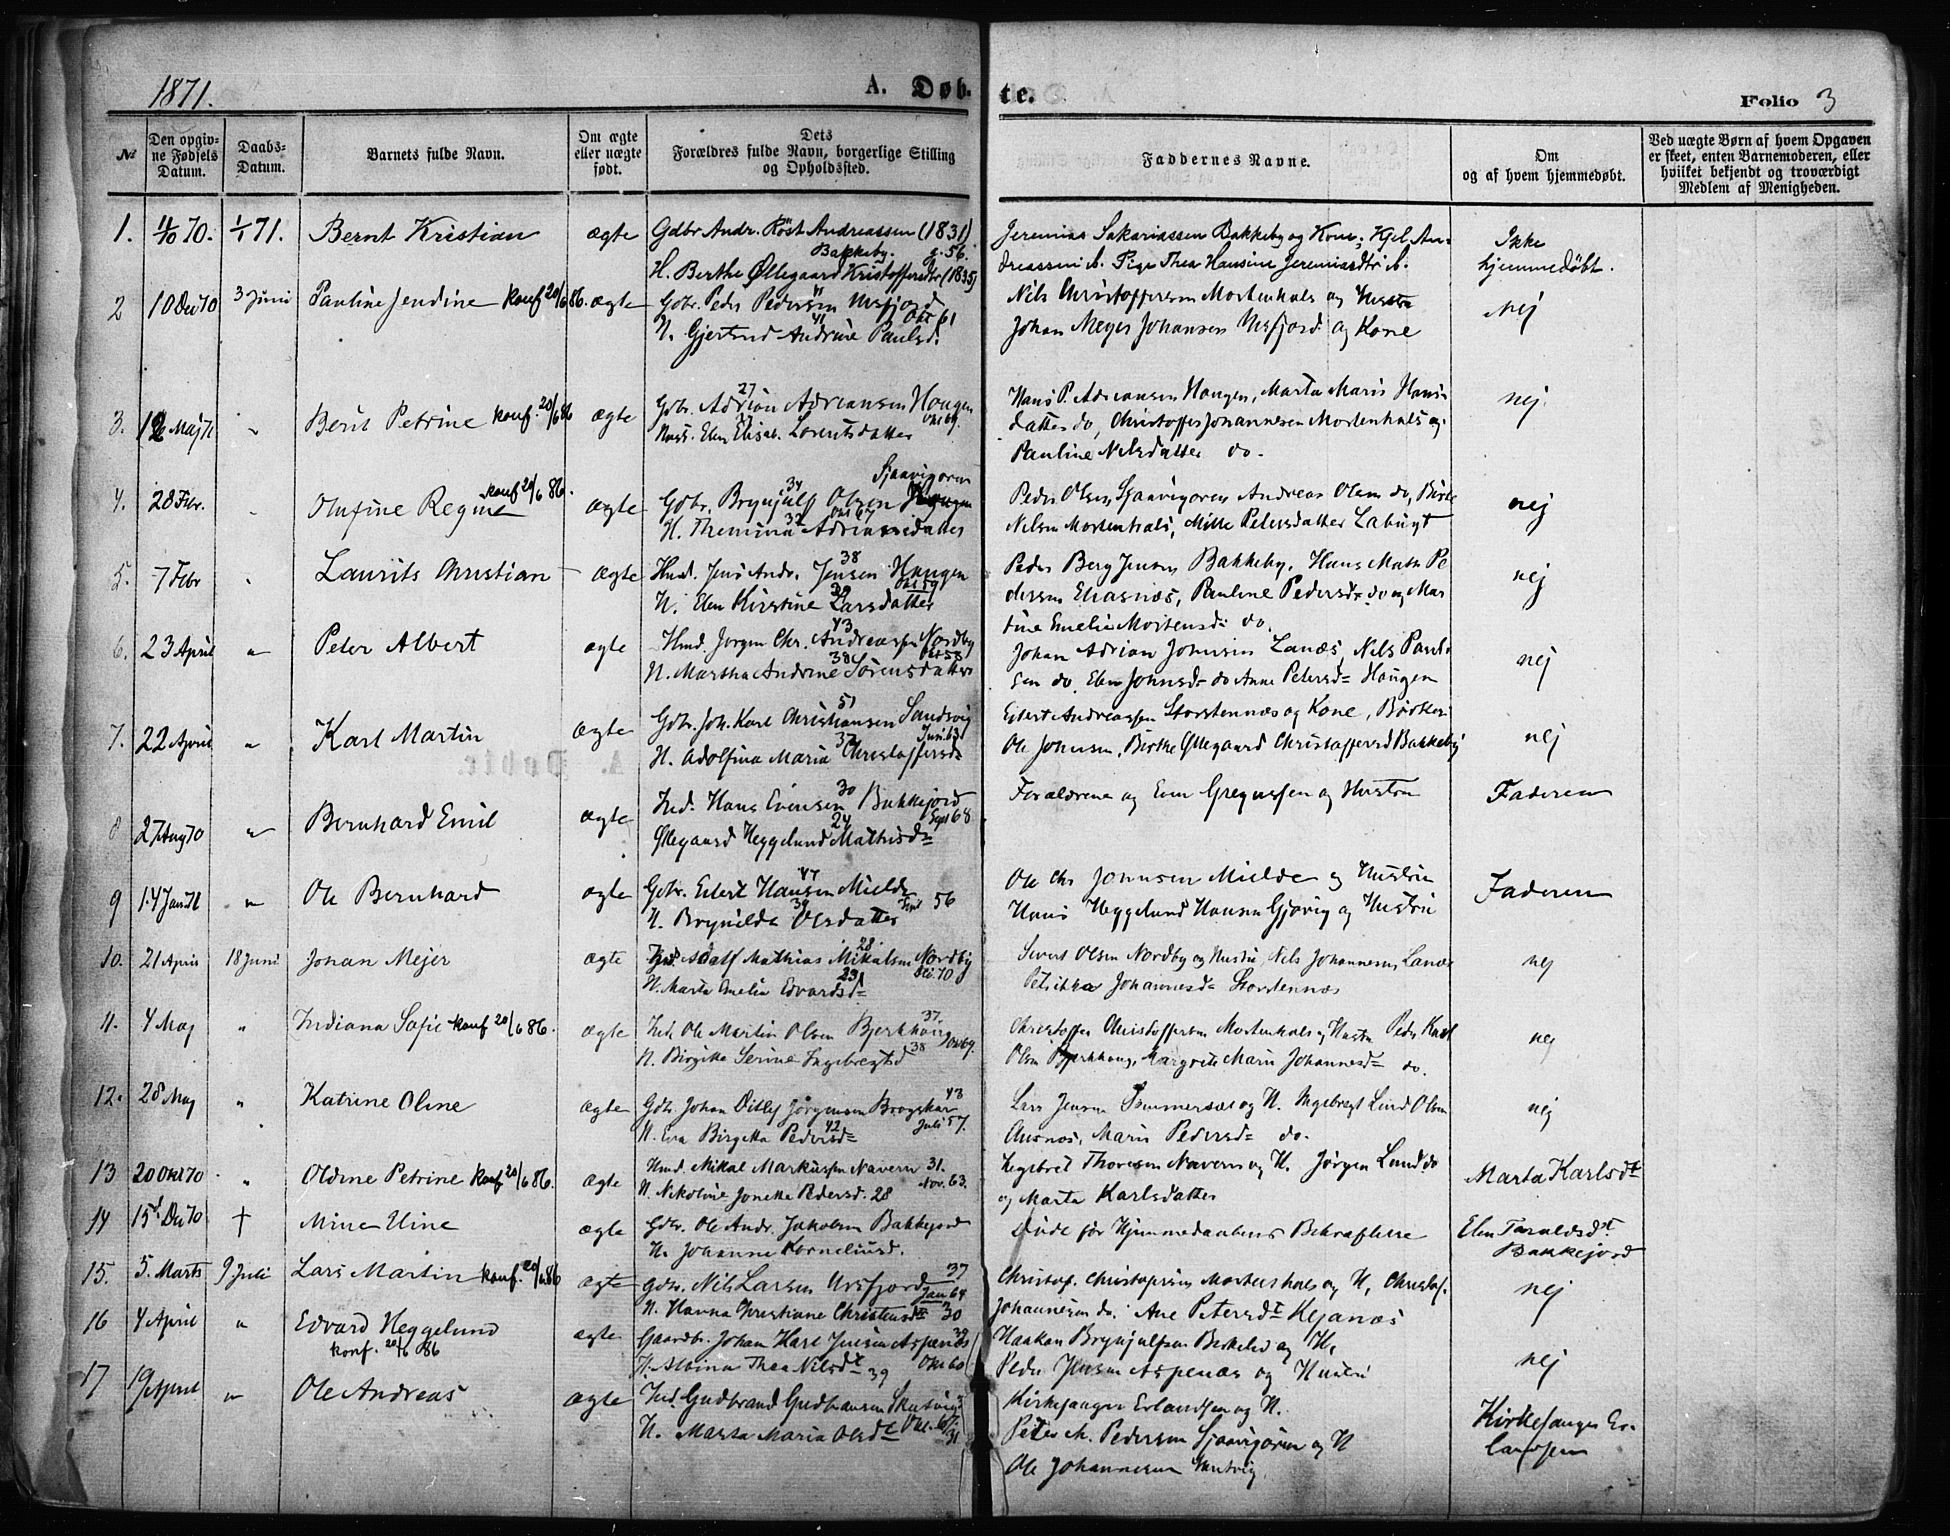 1871.
A. Døb-
te.
Folio 3
№
Den opgiv-
ne Fødsels
Datum.
Daabs-
Datum.
Barnets fulde Navn.
Om ægte
eller uægte
født.
Dets
Forældres fulde Navn, borgerlige Stilling
og Opholdssted.
Faddernes Navne.
Om
og af hvem hjemmedøbt.
Ved uægte Børn af hvem Opgaven
er skeet, enten Barnemoderen, eller
hvilket bekjendt og troværdigt
Medlem af Menigheden.
1. 4/10 70. 1/1 71. Bernt Kristian ægte Gdbr Andr. Röst Andreassen (1831)
Bakkeby. g. 56.
H. Berthe Øllegaard Kristoffersdtr (1835)
Jeremias Sakariassen Bakkeby og Kone; Kjel An-
dreassen b. Pige Thea Hansine Jeremiasdtr b.
Ikke
hjemmedøbt.
2 10 Dec 70 3 Juni Pauline Jendine konf 20/6 86. ægte Gdbr. Peder Pedersen Ursfjord
Okt 61
H. Gjertrud Andrine Paulsd.
Nils Christoffersen Mortenhals og Hustru
Johan Meyer Johansen Ursfjord og Kone
nej
3. 12 Maj 71 " Berit Petrine konf. 20/6 86 ægte Gdbr. Adrian Adriansen Haugen
27
Okt 69.
Hans P. Adriansen Haugen, Marta Maris Hans-
datter do, Christoffer Johannesen Mortenhals og
Pauline Nilsdatter do.
nej.
4. 28 Febr. " Olufine Regine konf 20/6 86. ægte
Sjaavigoren
Gdbr. Brynjulf Olsen
34
Okt 67
Peder Olsen Sjaavigoren Andreas Olsen do,
Nilsen Mortenhals, Mille Petersdatter
nej
5. 7 Febr " Laurits Christian ægte Hmd. Jens Andr. Jensen Haugen
38
Okt 59
H. Elen Kirstine Larsdatter
Peder Berg Jensen Bakkeby, Hans Math Pe
dersen Eliasnes, Pauline Pedersd= do og Mar
tine Emelie Mortensd= do.
nej
6. 23 April " Peter Albert ægte Hmd. Jørgen Chr. Andreassen Nordby
43
Okt 58
38
H. Martha Andrine Sörensdatter
Johan Adrian Johnsen Lanæs, Nils Paul-
sen do. Elen Johnsd= do Anne Petersd= Haugen
nej
7. 22 April " Karl Martin ægte Gdbr. Joh. Karl Christiansen Sandsvig
51
Juni 63
37
H. Adolfina Maria Christoffersd=
Edert Andreassen Storstennæs og Kone,
Ole Johnsen, Birthe Øllegaard Christoffersd Bakkeby
nej
8 27 Aug 70 " Bernhard Emil ægte Ind. Hans Evensen Bakkejord
30
Sept 68
24
Øllegaard Heggelund Mathisd=
Forældrene og Even Gregussen og Hustru
Faderen
9 14 Jan 71 " Ole Bernhard ægte Gdbr. Edert Hansen Mielde
47
56
39
H. Brynilda Olsdatter
Ole Chr Johnsen Mielde og Hustru
Hans Heggelund Hansen Gjøvig og Hustru
Faderen
10. 21 April 18 Juni Johan Mejer ægte Ind. Adolf Mathias Mikalsen Nordby
28.
Okt. 70
23
H. Marta Emelia Edvardsd=
Sivert Olsen Nordby og Hustru, Nils Johannesen Lanæs
Johannesd= Storstennæs
nej
11. 4 Maj " Indiana Sofie konf 20/6 86. ægte Ind. Ole Martin Olsen Bjerkhaug
37.
38
H. Birgitta Serine Ingebregtsd
Christoffer Christoffersen Mortenhals og Hustru Peder Knut
Olsen Bjerkhaug, Margrete Marie Johannesd= do.
nej
12. 28 Maj " Katrine Oline ægte Gdbr. Johan Ditlef Jørgensen
43
Juli 57.
42
H. Eva Birgitta Pedersd=
Lars Jensen Sommersæs og H. Ingebregt Lind Olsen
Ausnes, Maris Pedersd= do.
nej
13 20 Okt 70 " Oldine Petrine konf 20/6 86. ægte Hmd. Mikal Markussen Navern 31.
Nov. 63.
H. Nikoline Jonetta Pedersd. 28
Ingebret Thoresen Navern og H. Jørgen Lund do
og Marta Karlsdatter
Marta Karlsdt
14 15de Dec 70 † Mine Uine ægte Gdbr. Ole Andr. Jakobsen Bakkejord
H. Johanne Korneliusd.
Døde før Hjemmedaabens Bekræftelse
Elen
Bakkejord
15. 5. Marts 9 Juli Lars Martin konf. 20/6 86 ægte Gdbr. Nils Larsen Ursfjord 37
Jan 64
H. Hanna Kristiane Christensdtr 30
Christof. Christofersen Mortenhals og H, Christof.
Johannesen do. Ane Petersdt Kejanæs
nej
16 4 April " Edvard Heggelund
konf. 20/6 86
ægte Gaardbr. Johan Karl Jensen Aspenæs 39
Okt 60
H. Albina Thea Nilsdt 39
Haakon Brynjulfsen Birkelid og H,
Peder Jensen Aspenæs og Hustru
nej
17 19 April " Ole Andreas ægte Ind. Gudbrand Gudbransen
Okt. 67.
31
H. Marta Maria Olsdt
Kirkesanger Erlandsen og H.
Peter M. Pedersen Sjaavigoren og H
Ole Johannesen
Kirkesanger Er-
landsen